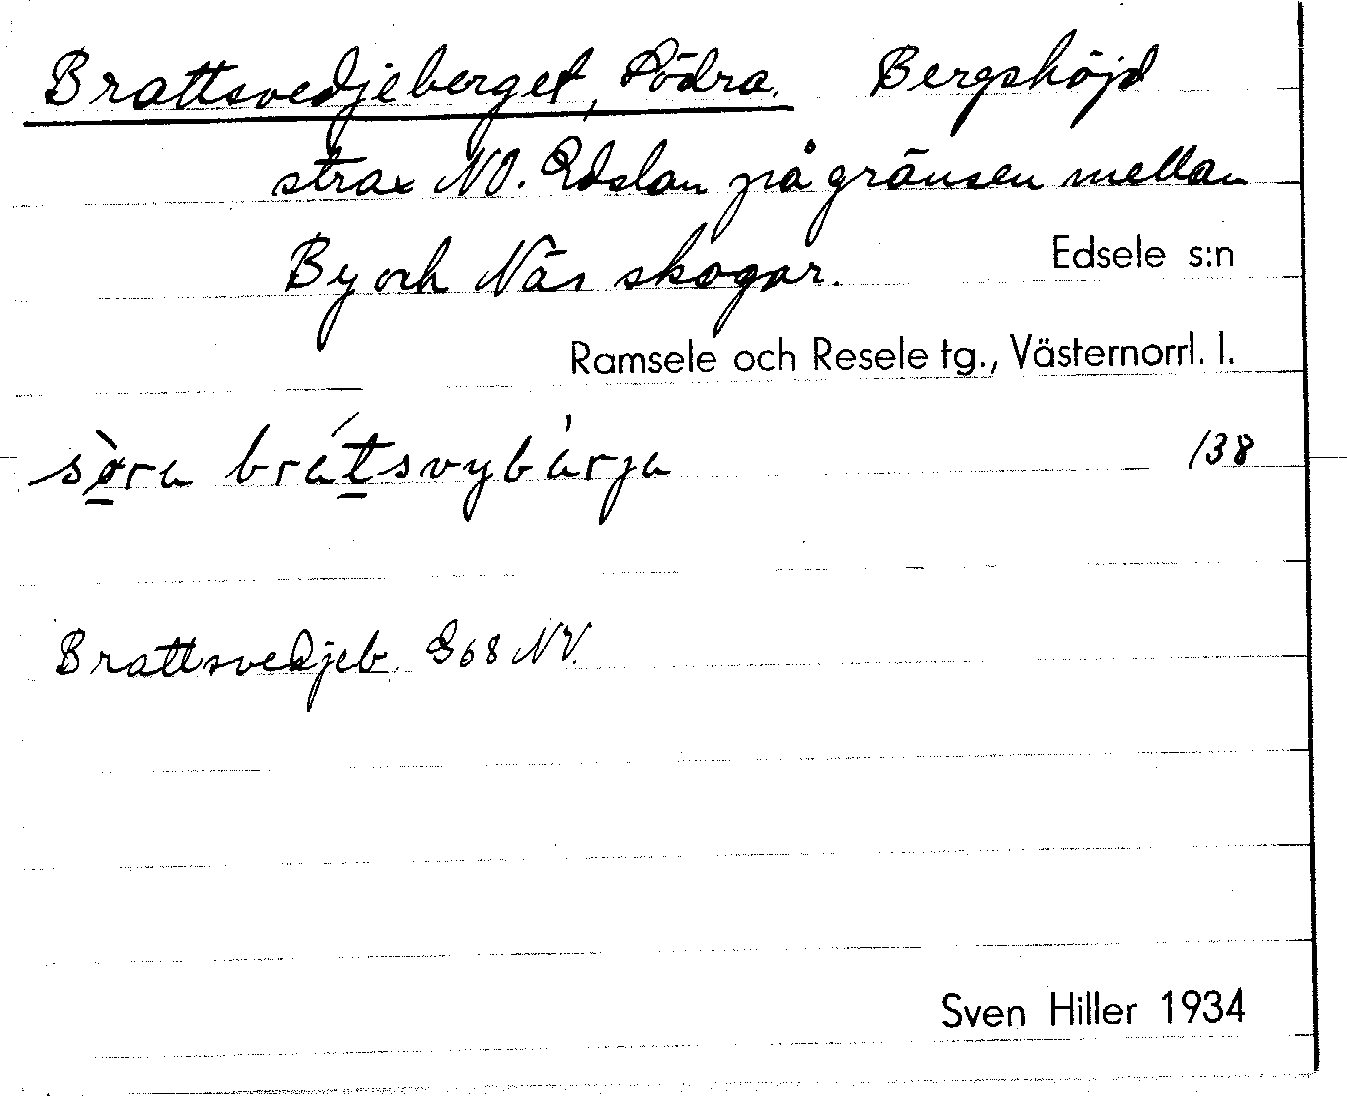 Brattsvedjeberget, Södra. Bergshöjd
strax NO. Edslan på gränsen mellan
By och Näs skogar. Edsele s:n
Ramsele och Resele tg., Västernorrl. l.
sø̀ra brátsvybàrja 138
Brattsvedjeb. G68 NV.
Sven Hiller 1934